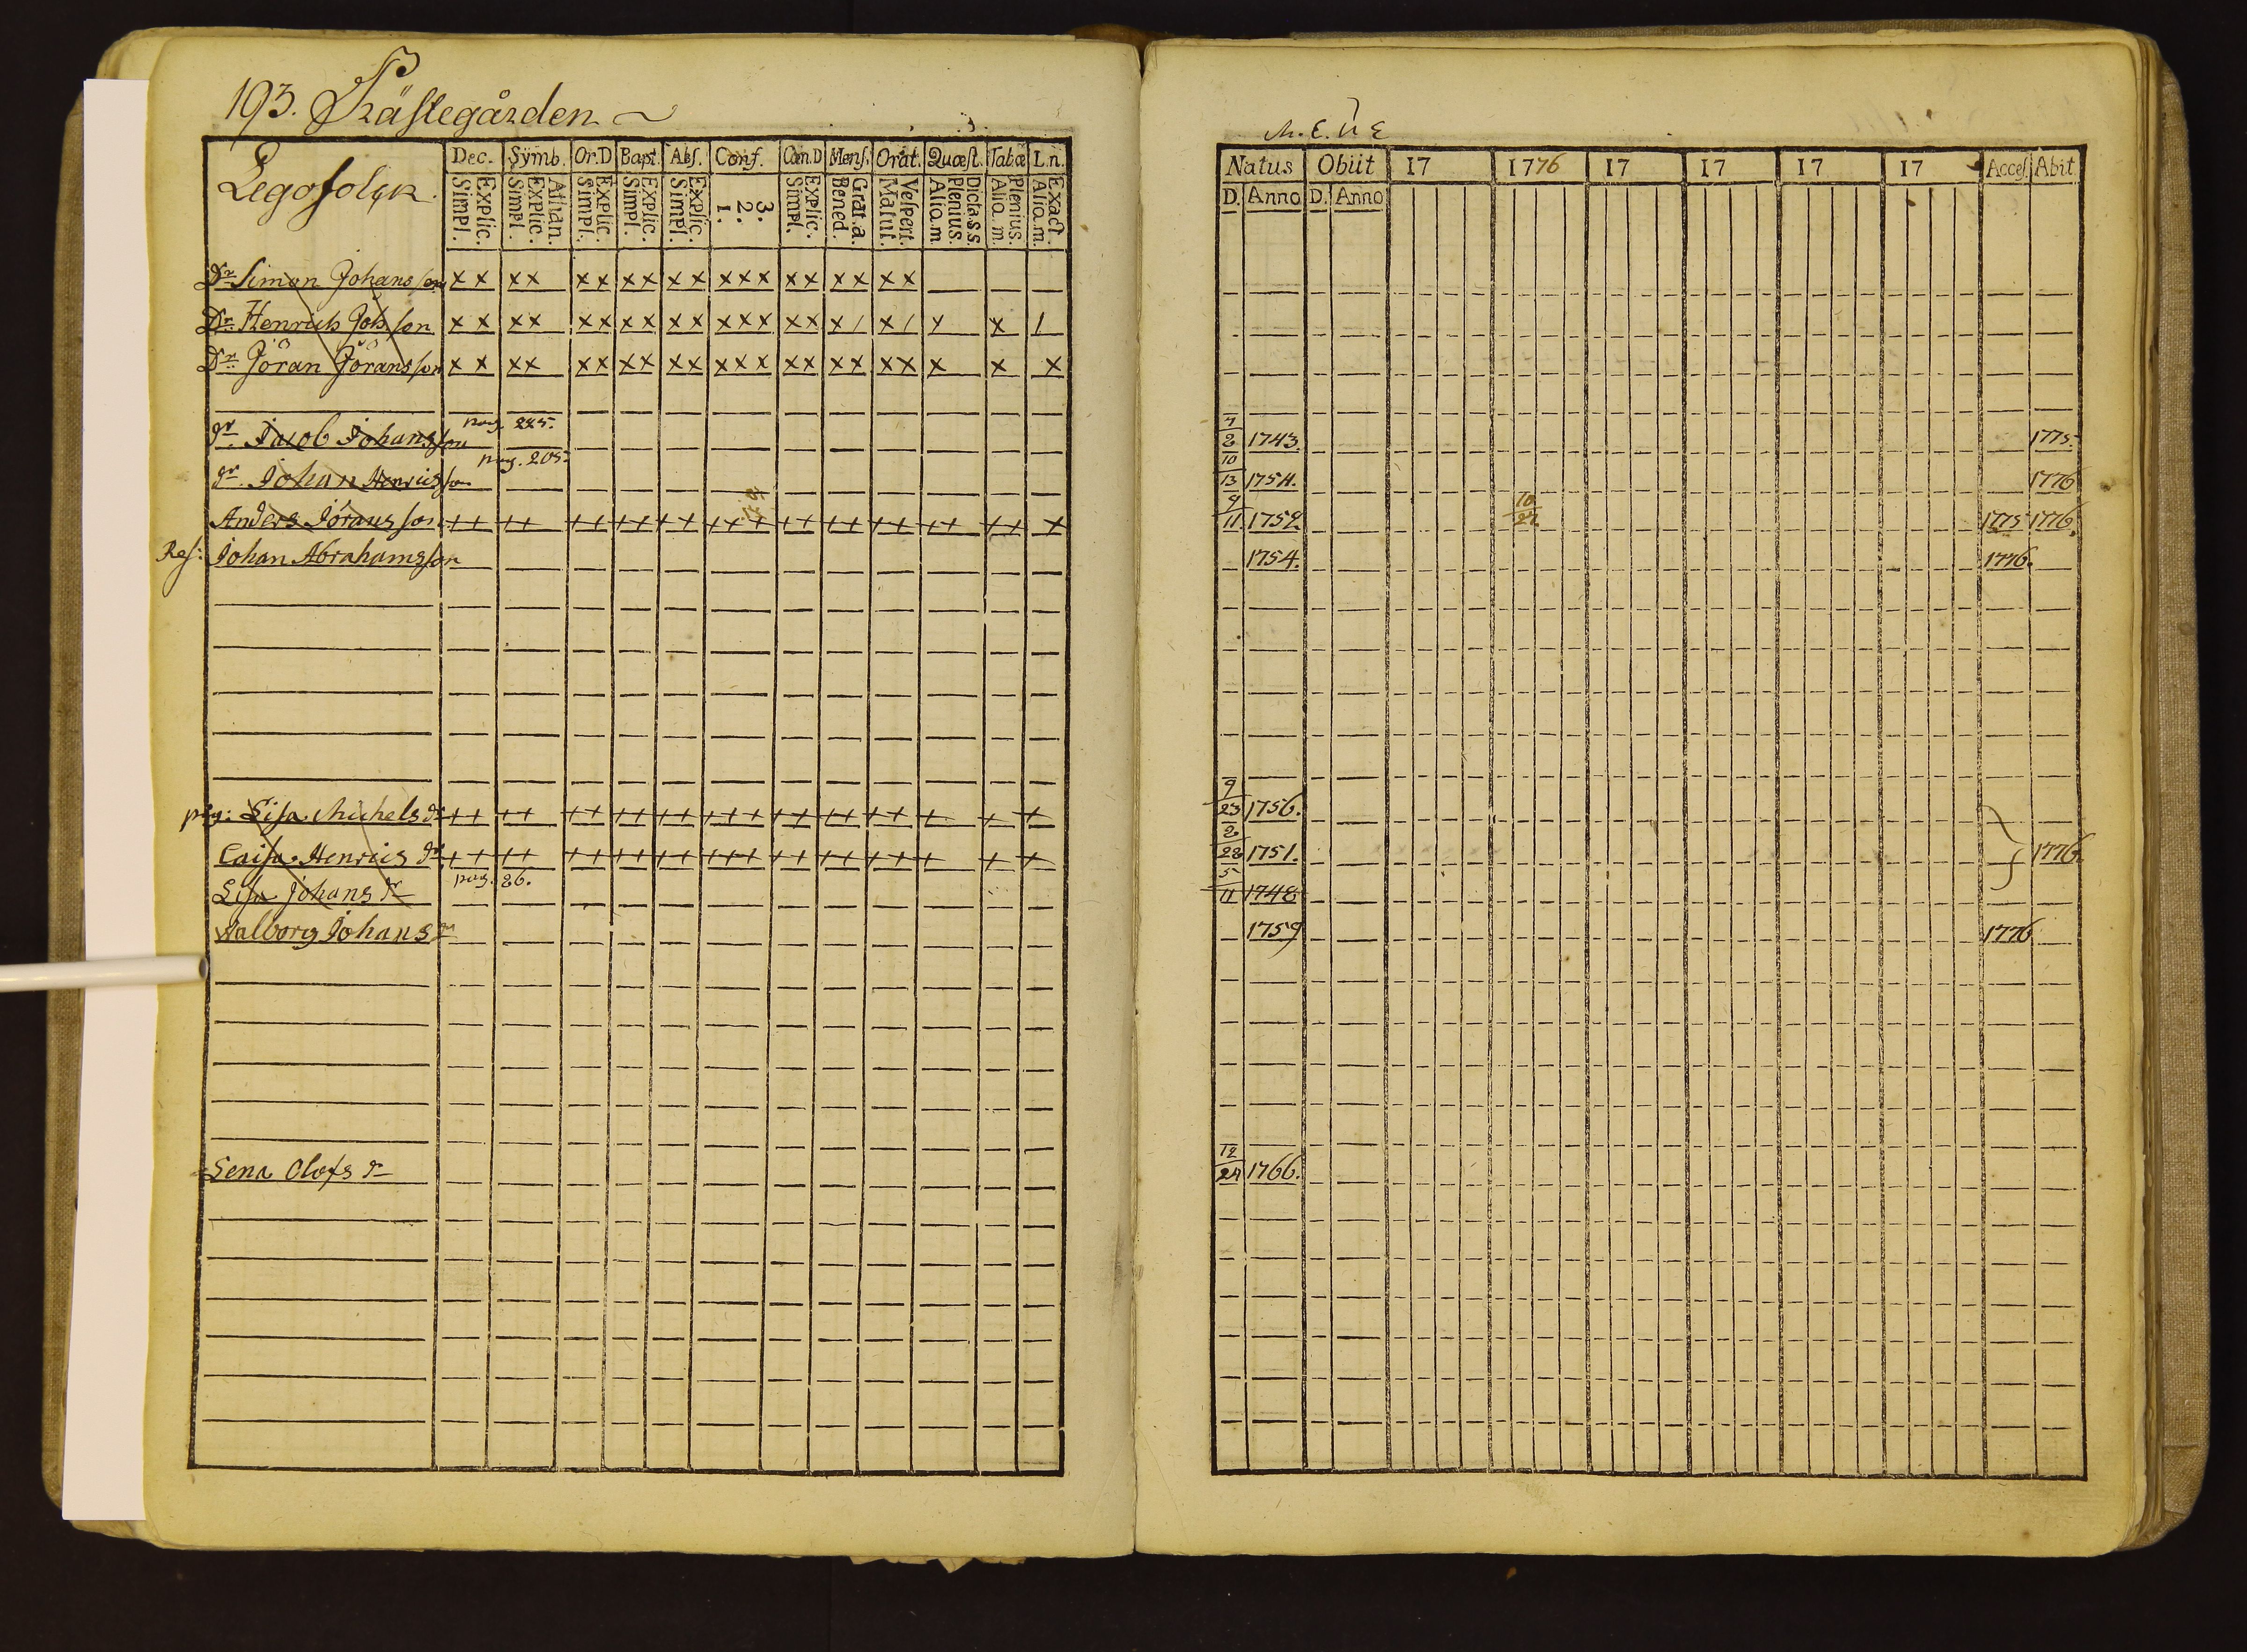 193. Prästegården
Legofolck.
Dec. Symb. Or.D Bapt. Abs. Conf. Cœn.D Mens. Orat. Quæst. Tabæ L.n.
Simpl. Explic. Simpl. Explic. Athan. Simpl. Explic. Simpl. Explic. Simpl. Explic. 1. 2. 3. Simpl. Explic. Bened. Grat.a. Matut. Vespert. Alio.m Plenius. Dicta.s.s. Alio.m. Plenius. Alio.m. Exact.
Dr. Simon Johansson x x x x x x x x x x x x x x x x x x x
Dr. Henrich Joh.son x x x x x x x x x x x x x x x x / x / x x /
Dr. Jöran Jöransson x x x x x x x x x x x x x x x x x x x x x x
dr. Jacob Johansson pag. 225.
dr. Johan Henricsson pag. 205.
Anders Jöransson
Johan Abrahamsson
pig: Lisa Michels dr
Caisa Henrics dr
Lisa Johans dr pag. 86.
Walborg Johans dr
Lena Olofs dr
Natus Obiit 17 1776 17 17 17 17 Acces. Abit
D. Anno D. Anno
2 1743. 1775.
10
13 1754. 1776
9
11 1759 10 27 1775 1776.
1754. 1776.
9
23 1756.
2
28 1751. 1776.
5
11 1748
1759 1776
12
24 1766.